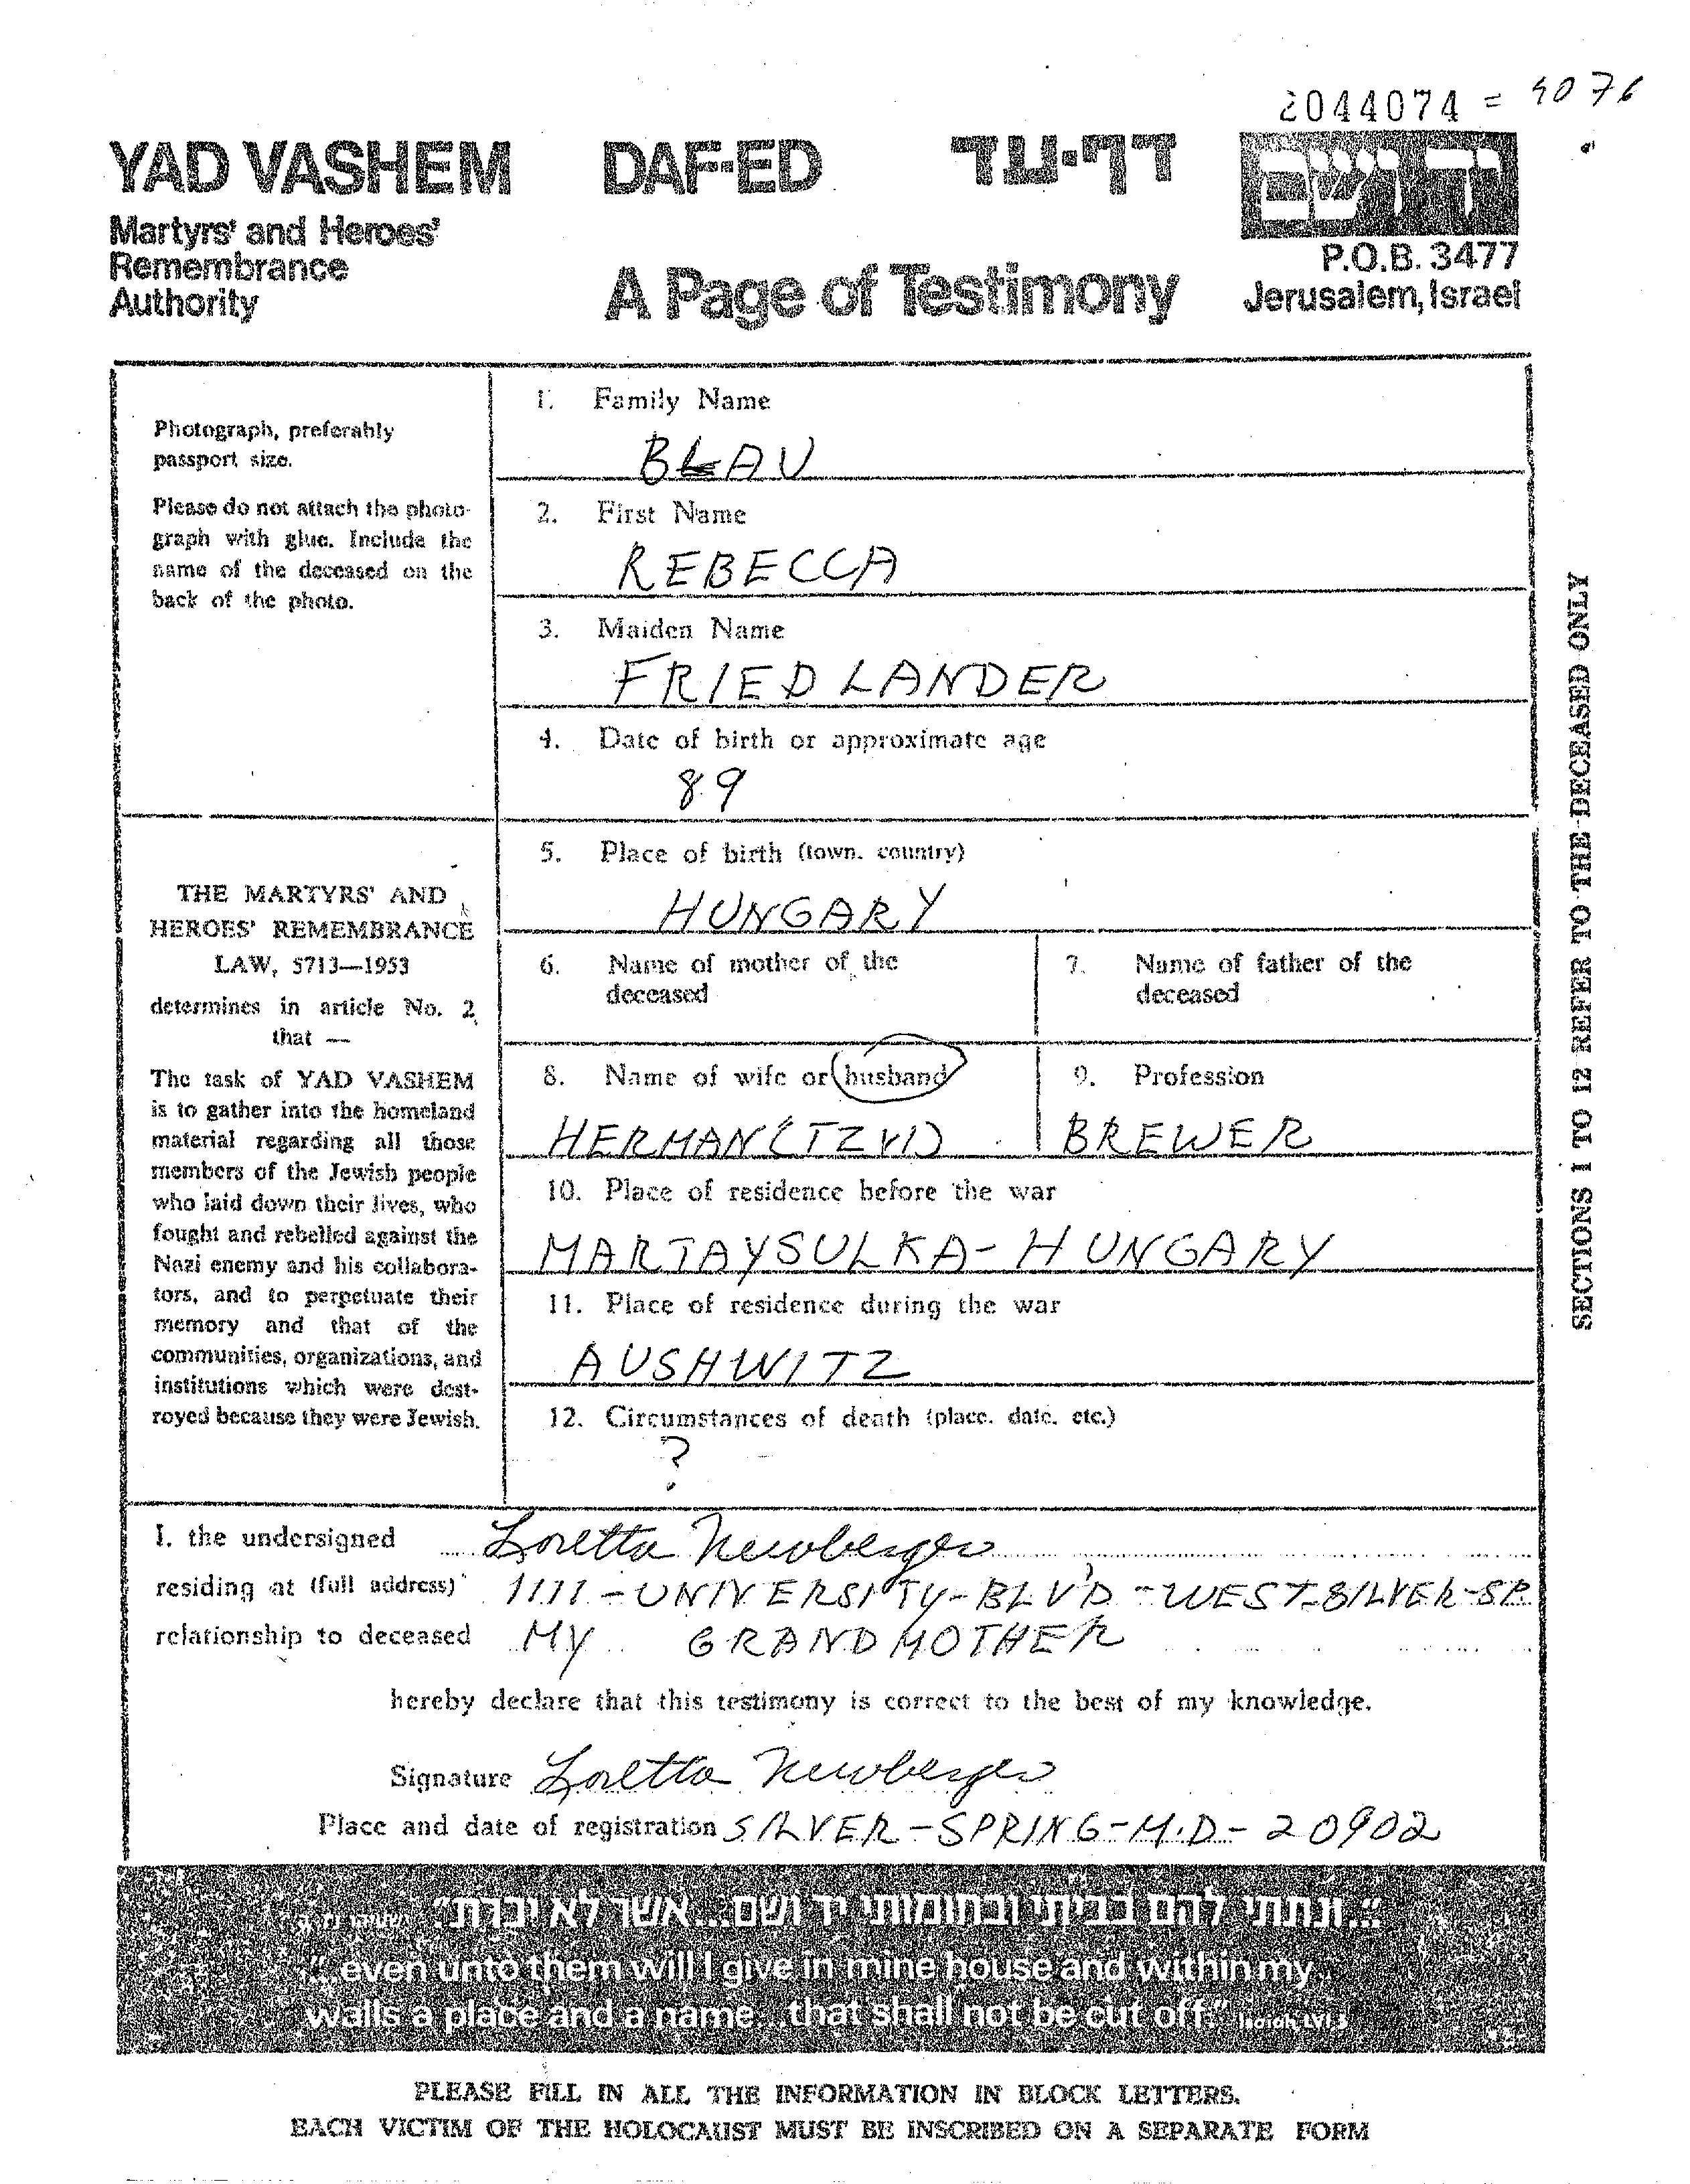 2044074 = 4076
YAD VASHEM DAF-ED דף-עד יד ושם
Martyrs' and Heroes'
Remembrance
Authority
A Page of Testimony
P.O.B. 3477
Jerusalem, Israel
Photograph, preferably
passport size.
Please do not attach the photo-
graph with glue. Include the
name of the deceased on the
back of the photo.
THE MARTYRS' AND
HEROES' REMEMBRANCE
LAW, 5713—1953
determines in article No. 2
that —
The task of YAD VASHEM
is to gather into the homeland
material regarding all those
members of the Jewish people
who laid down their lives, who
fought and rebelled against the
Nazi enemy and his collabora-
tors, and to perpetuate their
memory and that of the
communities, organizations, and
institutions which were dest-
royed because they were Jewish.
1. Family Name
BLAU
2. First Name
REBECCA
3. Maiden Name
FRIEDLANDER
4. Date of birth or approximate age
89
5. Place of birth (town. country)
HUNGARY
6. Name of mother of the
deceased
7. Name of father of the
deceased
8. Name of wife or husband
HERMAN (TZVI)
9. Profession
BREWER
10. Place of residence before the war
MARTAYSULKA - HUNGARY
11. Place of residence during the war
AUSHWITZ
12. Circumstances of death (place. date. etc.)
?
SECTIONS 1 TO 12 REFER TO THE DECEASED ONLY
I. the undersigned Loretta Newberger
residing at (full address) 1111 - UNIVERSITY - BLV'D - WEST - SILVER - SP.
relationship to deceased MY GRANDMOTHER
hereby declare that this testimony is correct to the best of my knowledge.
Signature Loretta Newberger
Place and date of registration SILVER - SPRING - M.D - 20902
"...ונתתי להם בביתי ובחומותי יד ושם...אשר לא יכרת" ישעיהו נו, ה
"...even unto them will I give in mine house and within my
walls a place and a name...that shall not be cut off." Isaiah, LVI.5
PLEASE FILL IN ALL THE INFORMATION IN BLOCK LETTERS.
EACH VICTIM OF THE HOLOCAUST MUST BE INSCRIBED ON A SEPARATE FORM